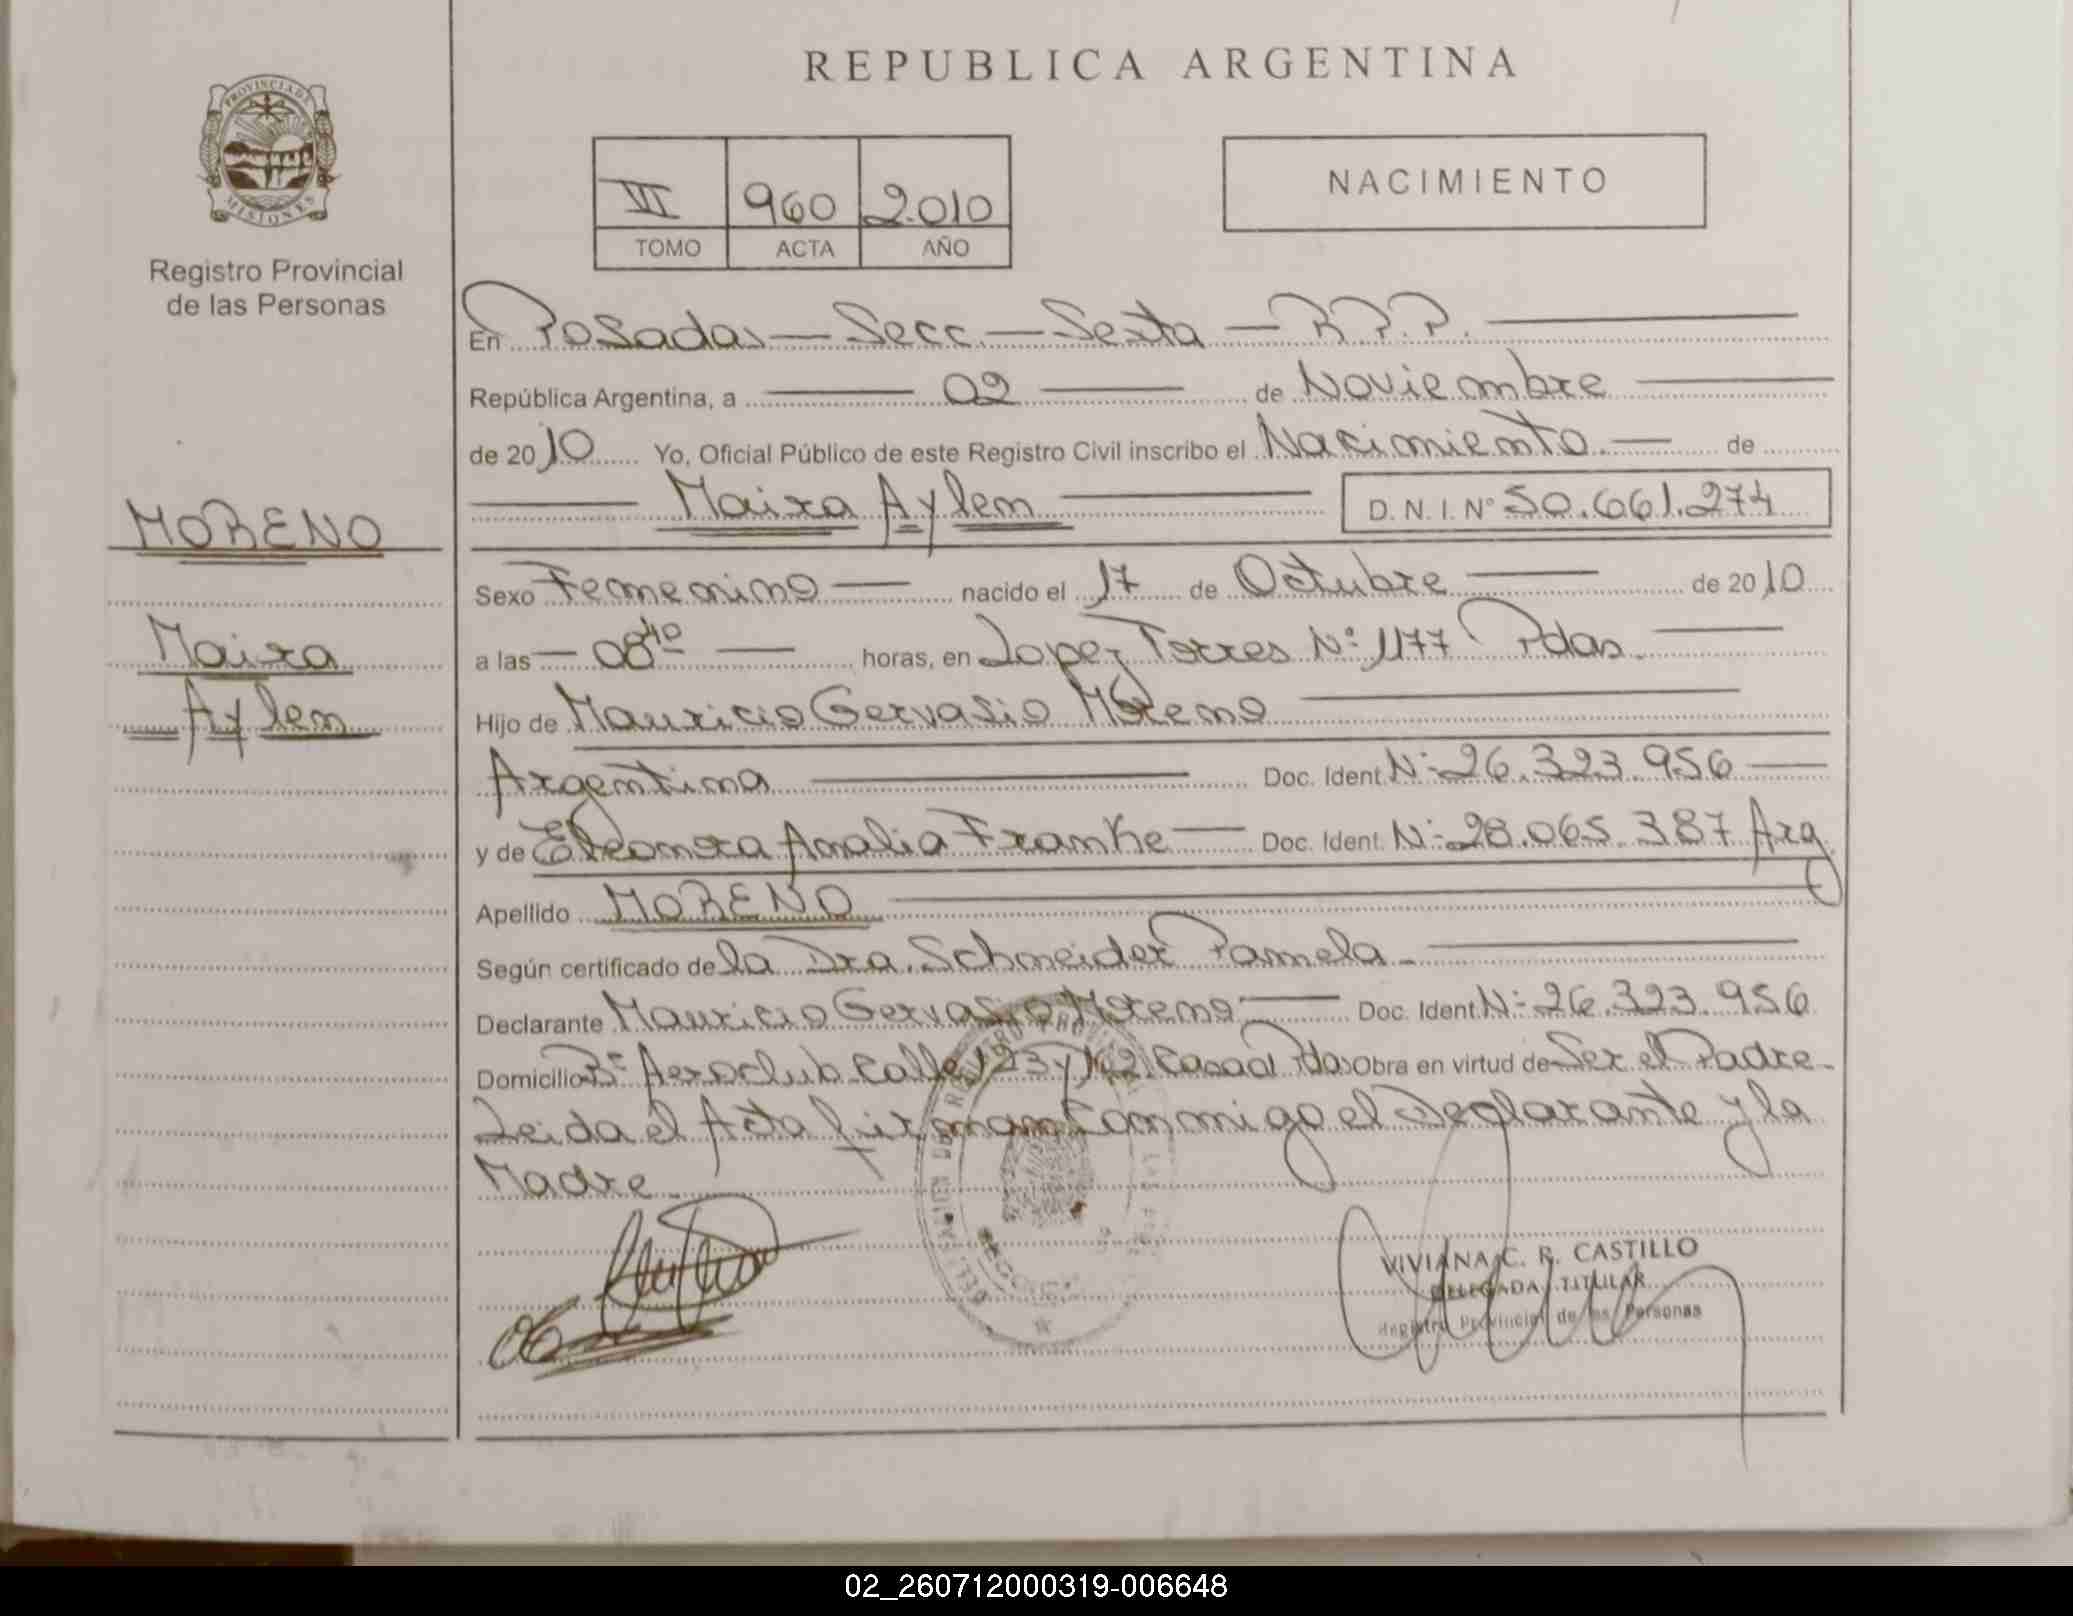 REPUBLICA ARGENTINA
PROVINCIA DE
MISIONES
Registro Provincial
de las Personas
VI 960 2.010
TOMO ACTA AÑO
NACIMIENTO
En Posadas — Secc — Sexta — R.P.P.
República Argentina, a 02 de Noviembre
de 2010 Yo, Oficial Público de este Registro Civil inscribo el Nacimiento de
Maira Aylen D.N.I. Nº 50.661.274
MORENO
Maira
Aylen
Sexo Femenino nacido el 17 de Octubre de 2010
a las 08 40 horas, en Lopez Torres Nº 1177 Pdas.
Hijo de Mauricio Gervasio Moreno
Argentina Doc. Ident. Nº 26.323.956
y de Eleonora Analia Franke Doc. Ident. Nº 28.065.387 Arg.
Apellido MORENO
Según certificado de la Dra. Schneider Pamela
Declarante Mauricio Gervasio Moreno Doc. Ident. Nº 26.323.956
Domicilio Bº Aeroclub Calle 123 y 162 Casa Pdas Obra en virtud de Ser el Padre
Leida el Acta firman Conmigo el Declarante y la
Madre
VIVIANA C. R. CASTILLO
DELEGADA TITULAR
Registro Provincial de las Personas
02_260712000319-006648